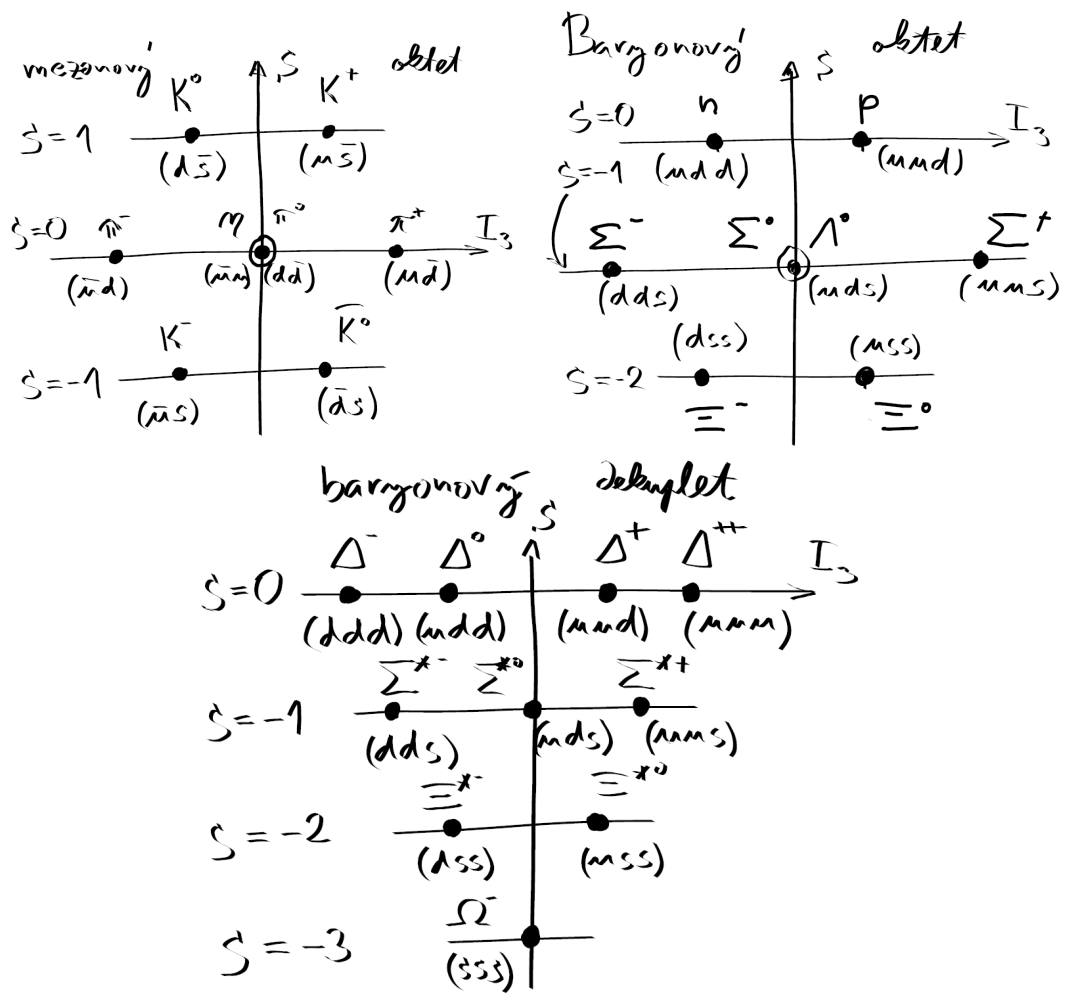 mezonový S oktet
K⁰ K⁺
S=1
(ds̄) (us̄)
S=0 π⁻ η π⁰ π⁺ I₃
(ūd) (ūu) (dd̄) (ud̄)
K⁻ K̄⁰
S=-1
(ūs) (d̄s)
Baryonový S oktet
S=0 n p I₃
(udd) (uud)
S=-1
Σ⁻ Σ⁰ Λ⁰ Σ⁺
(dds) (uds) (uus)
(dss) (uss)
S=-2
Ξ⁻ Ξ⁰
baryonový S dekuplet
Δ⁻ Δ⁰ Δ⁺ Δ⁺⁺ I₃
S=0
(ddd) (udd) (uud) (uuu)
Σ*⁻ Σ*⁰ Σ*⁺
S=-1
(dds) (uds) (uus)
Ξ*⁻ Ξ*⁰
S=-2
(dss) (uss)
Ω⁻
S=-3
(sss)